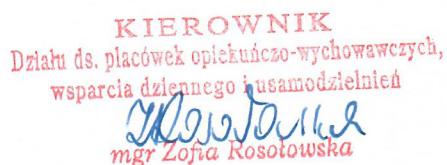 KIEROWNIK
Działu ds. placówek opiekuńczo-wychowawczych,
wsparcia dziennego i usamodzielnień
mgr Zofia Rosołowska